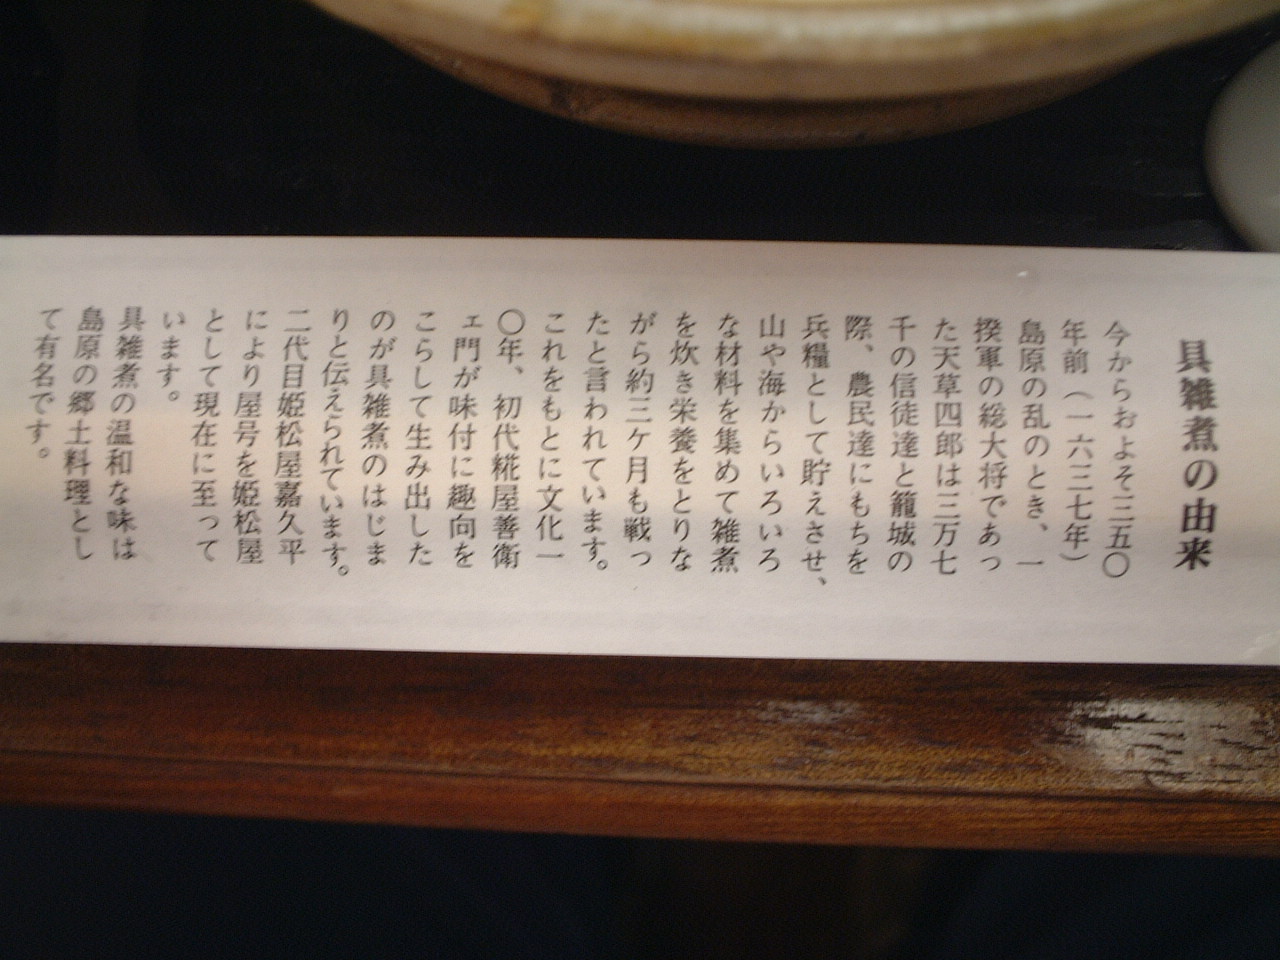 具雑煮の由来
今からおよそ三五〇
年前（一六三七年）
島原の乱のとき、一
揆軍の総大将であっ
た天草四郎は三万七
千の信徒達と籠城の
際、農民達にもちを
兵糧として貯えさせ、
山や海からいろいろ
な材料を集めて雑煮
を炊き栄養をとりな
がら約三ケ月も戦っ
たと言われています。
これをもとに文化一
〇年、初代糀屋善衛
ェ門が味付に趣向を
こらして生み出した
のが具雑煮のはじま
りと伝えられています。
二代目姫松屋嘉久平
により屋号を姫松屋
として現在に至って
います。
具雑煮の温和な味は
島原の郷土料理とし
て有名です。